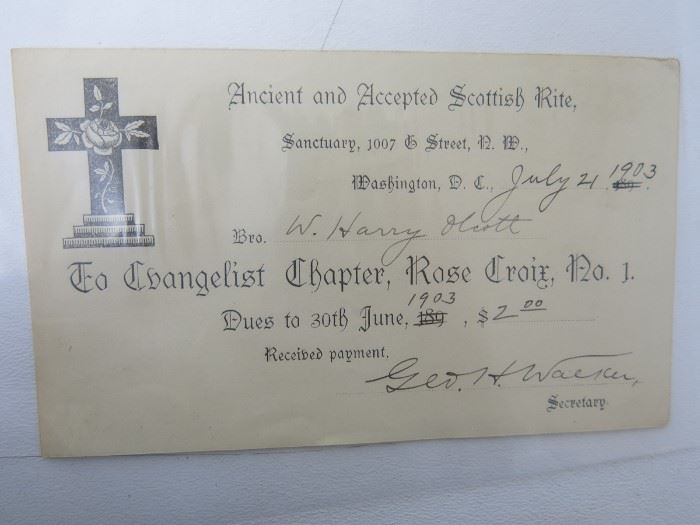 Ancient and Accepted Scottish Rite,
Sanctuary, 1007 G Street, N. W.,
Washington, D. C., July 21 1903 189 .
Bro. W. Harry Olcott
To Evangelist Chapter, Rose Croix, No. 1.
1903
Dues to 30th June, 189 , $ 2 00
Received payment,
Geo. H. Walker,
Secretary.